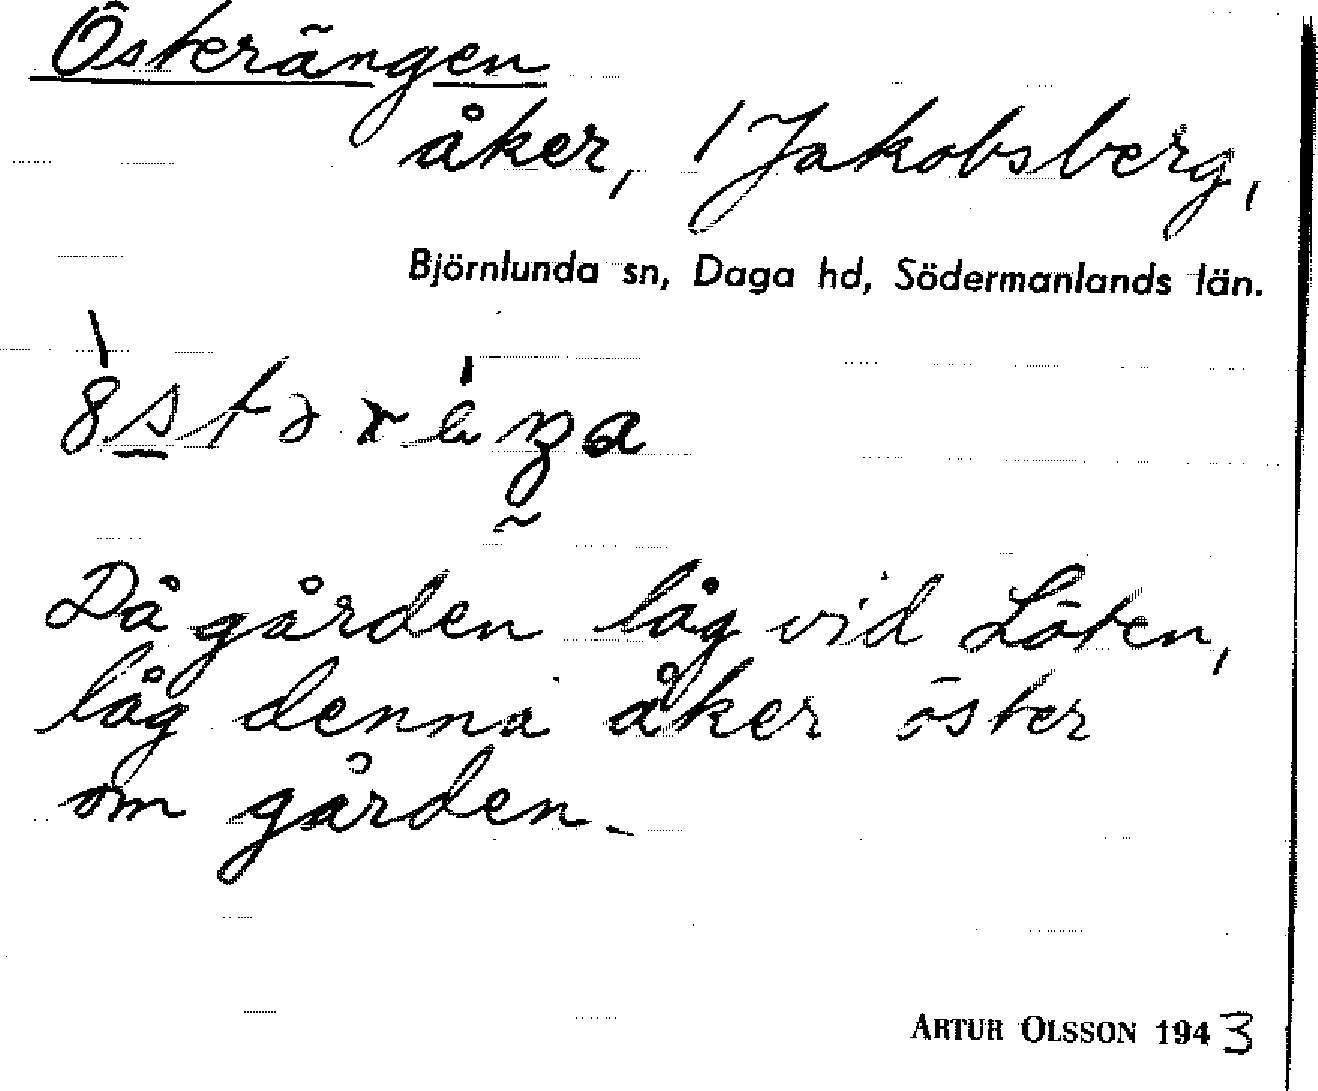 Österängen
åker, 1 Jakobsberg,
Björnlunda sn, Daga hd, Södermanlands län.
Då gården låg vid Löten,
låg denna åker öster
om gården.
ARTUR OLSSON 1943